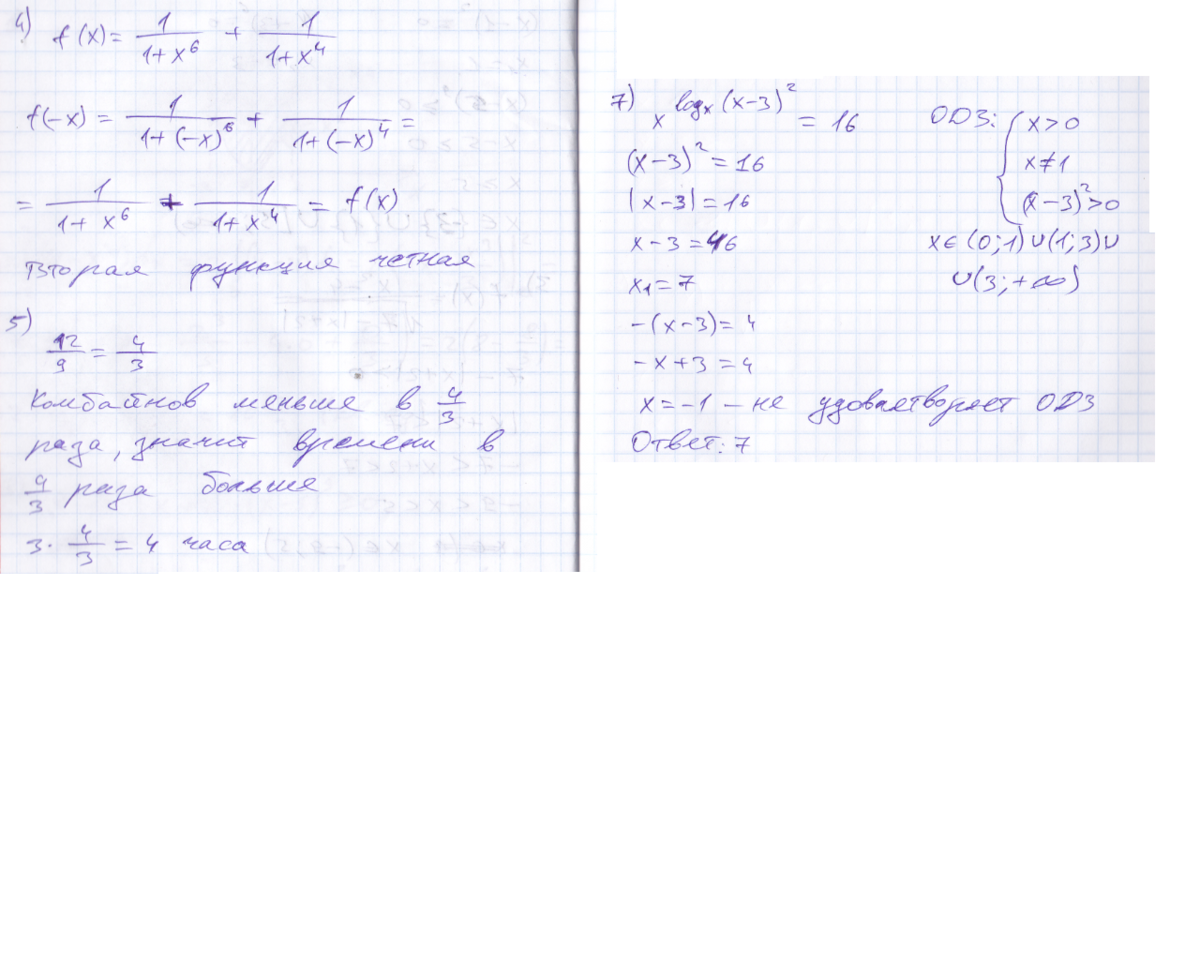 4) f(x) = 1/(1+x⁶) + 1/(1+x⁴)
f(-x) = 1/(1+(-x)⁶) + 1/(1+(-x)⁴) =
= 1/(1+x⁶) + 1/(1+x⁴) = f(x)
Вторая функция четная
5)
12/9 = 4/3
Комбайнов меньше в 4/3
раза, значит времени в
4/3 раза больше
3 · 4/3 = 4 часа
7) x^(logₓ(x-3)²) = 16
(x-3)² = 16
|x-3| = 16
x-3 = 4
x₁ = 7
-(x-3) = 4
-x+3 = 4
x = -1 - не удовлетворяет ОДЗ
Ответ: 7
ОДЗ: { x>0
x≠1
(x-3)²>0
x∈(0;1)∪(1;3)∪
∪(3;+∞)